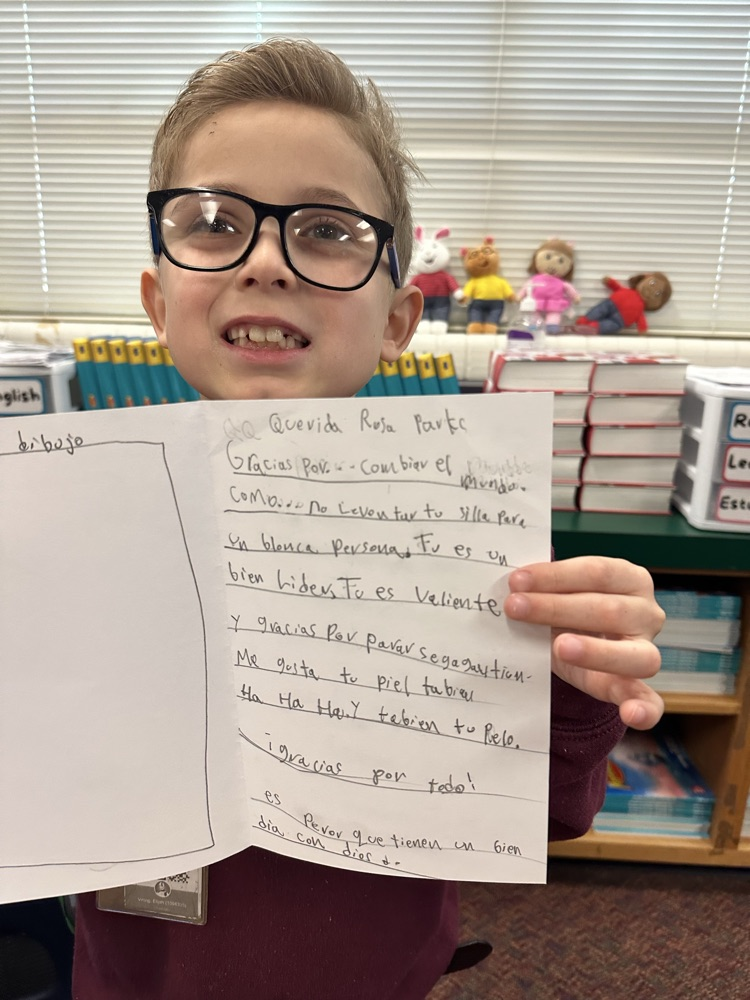 dibujo
Querida Rosa Parks
Gracias por... combiar el
mundo.
Como... no Levontar tu silla para
un blonca persona. Tu es un
bien Lider, Tu es valiente
y gracias Por parar segagastion.
Me gusta tu piel tabien
Ha Ha Ha. Y tabien tu Pielo.
¡gracias por todo!
es Peror que tienen un bien
dia con dios
nglish
R
Le
Est